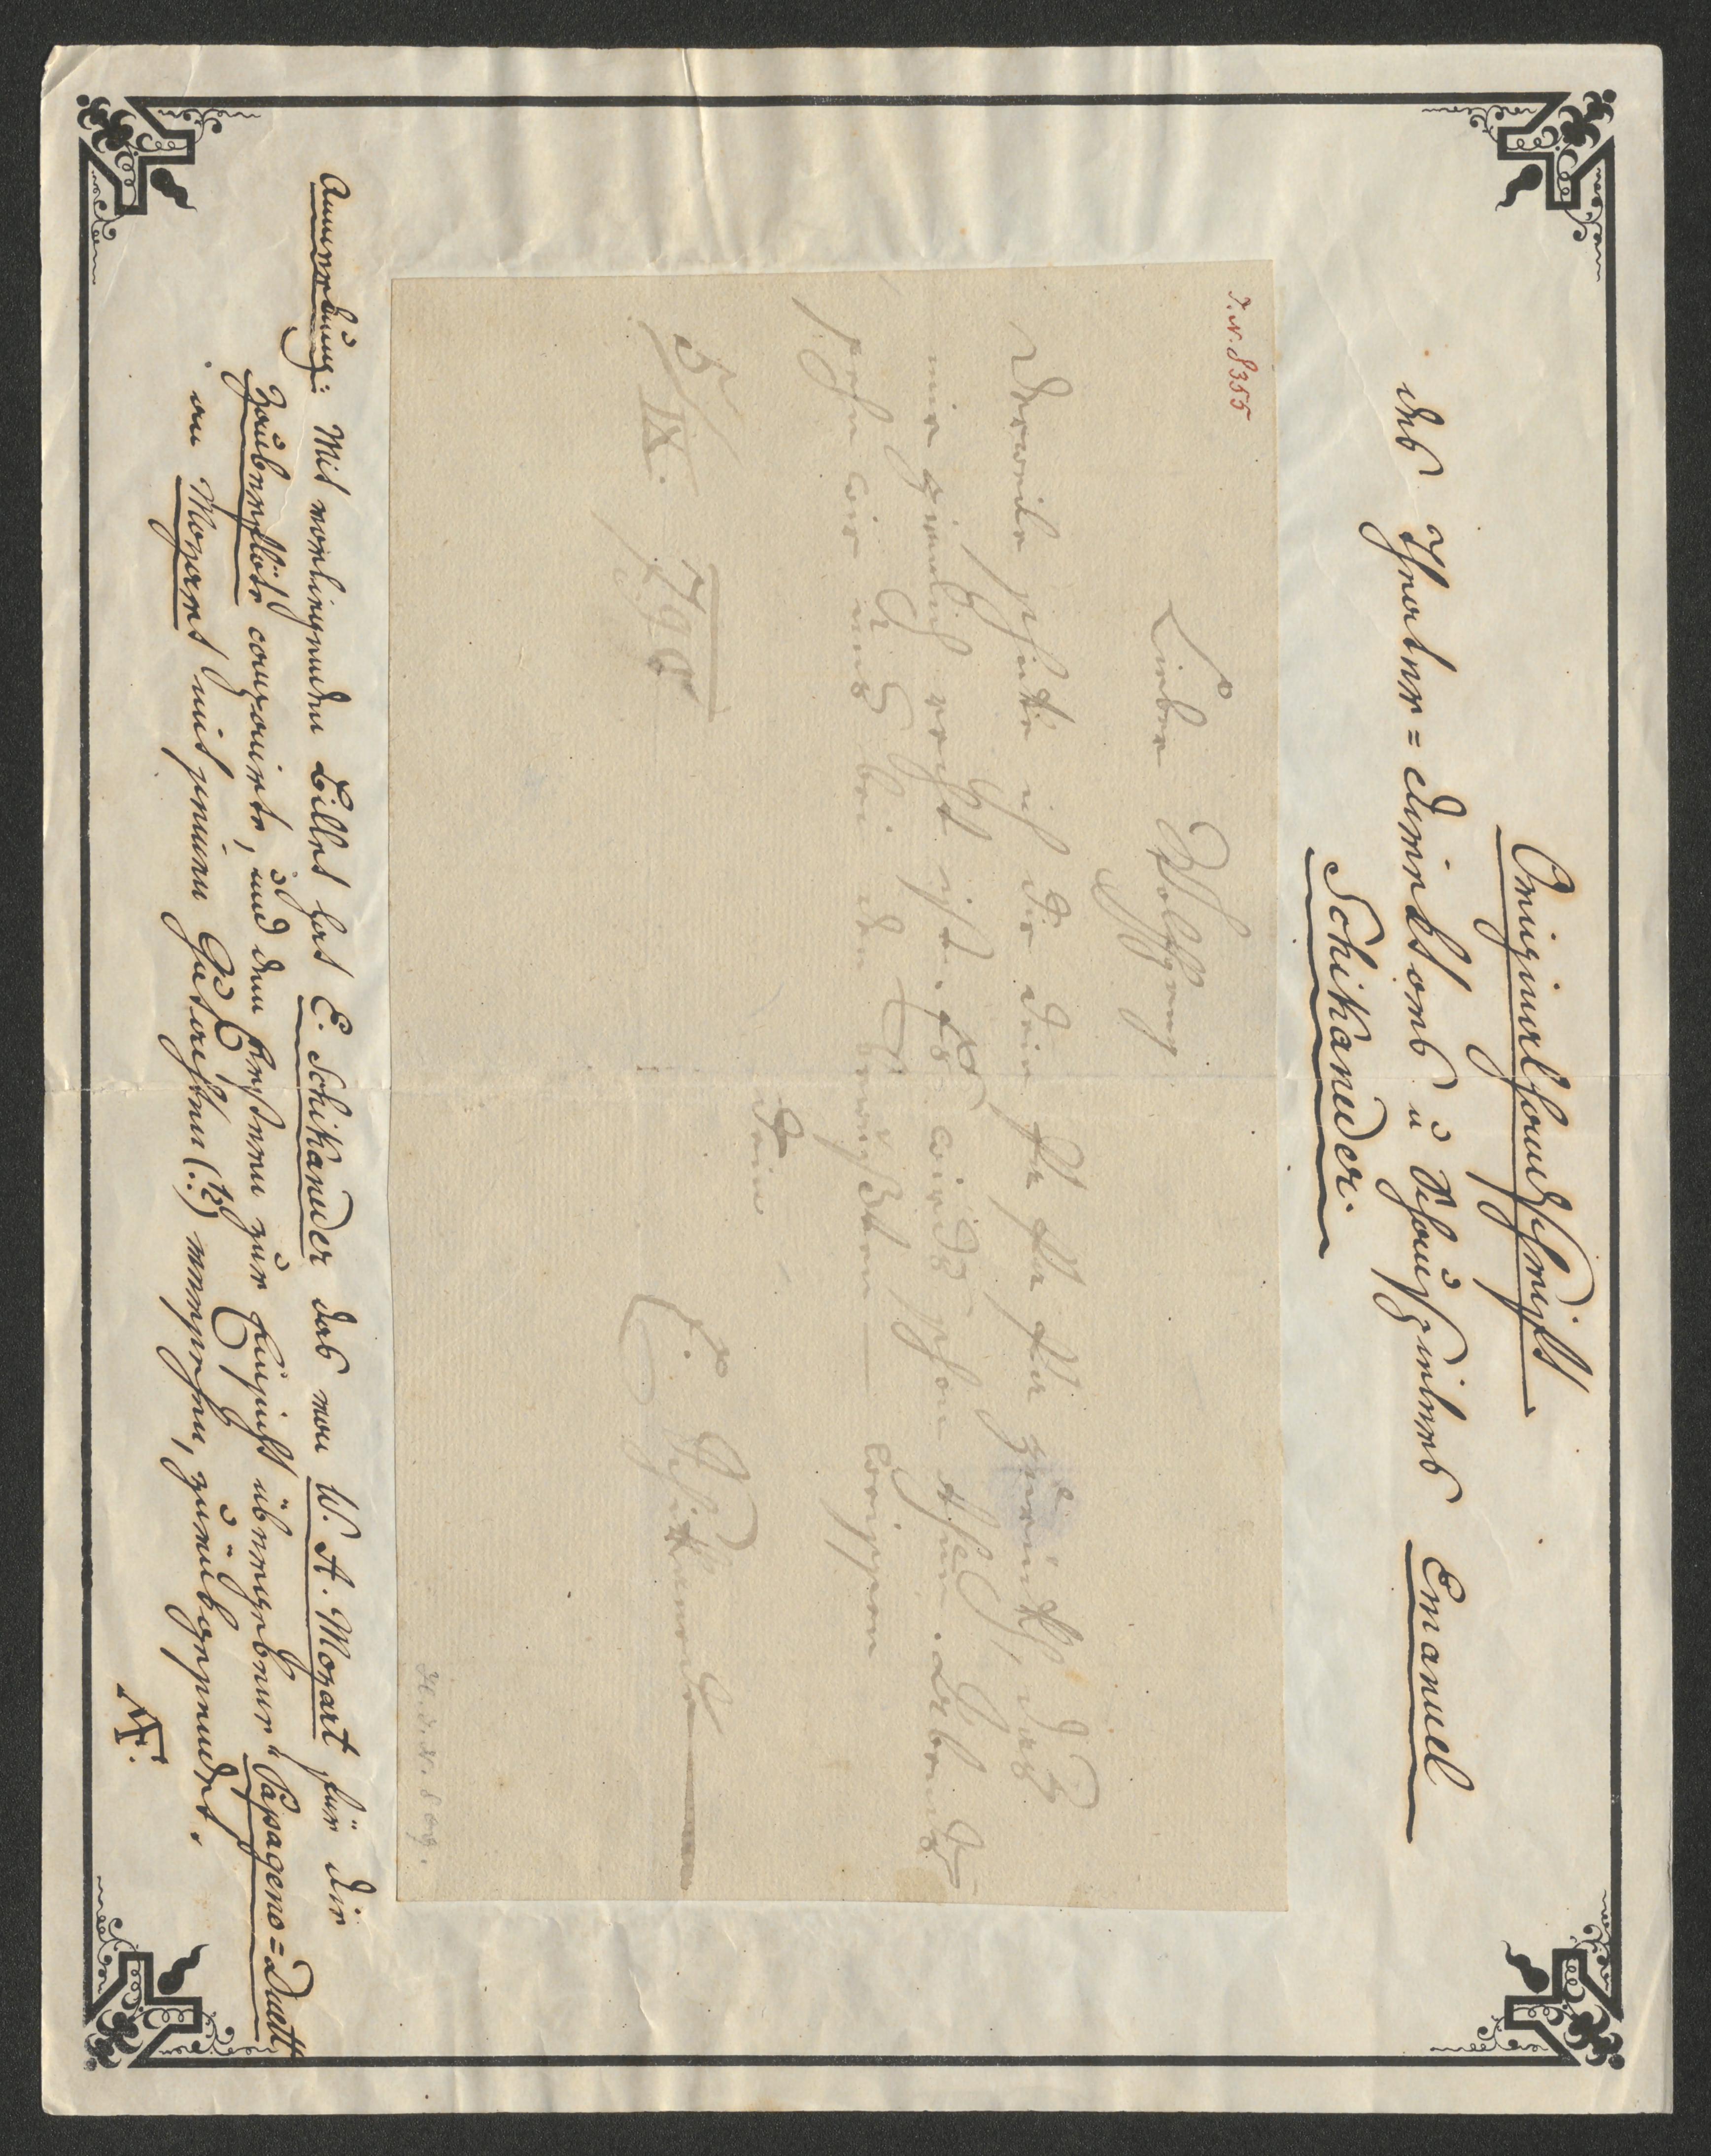 Originalhandschrift
des Theater=Direktors u Schauspielers Emanuel
Schikaneder.
I.N. 8355
Lieber Wolfgang
Derweile schicke ich dir dein Pa Pa Pa zurück, das
mir ziemlich recht ist. Es wirds schon thun. Abends
sehn wir uns bei den bewußten –
Dein
5/IX. 790
E. Schikaneder
Anmerkung: Mit vorliegendem Billet hat E. Schikaneder das von W. A. Mozart für die
Zauberflöte componirte, und dem Ersteren zur Einsicht übergebene "Papageno=Duett
an Mozart mit seinem Gutachten (:?) versehen, zurückgesendet.